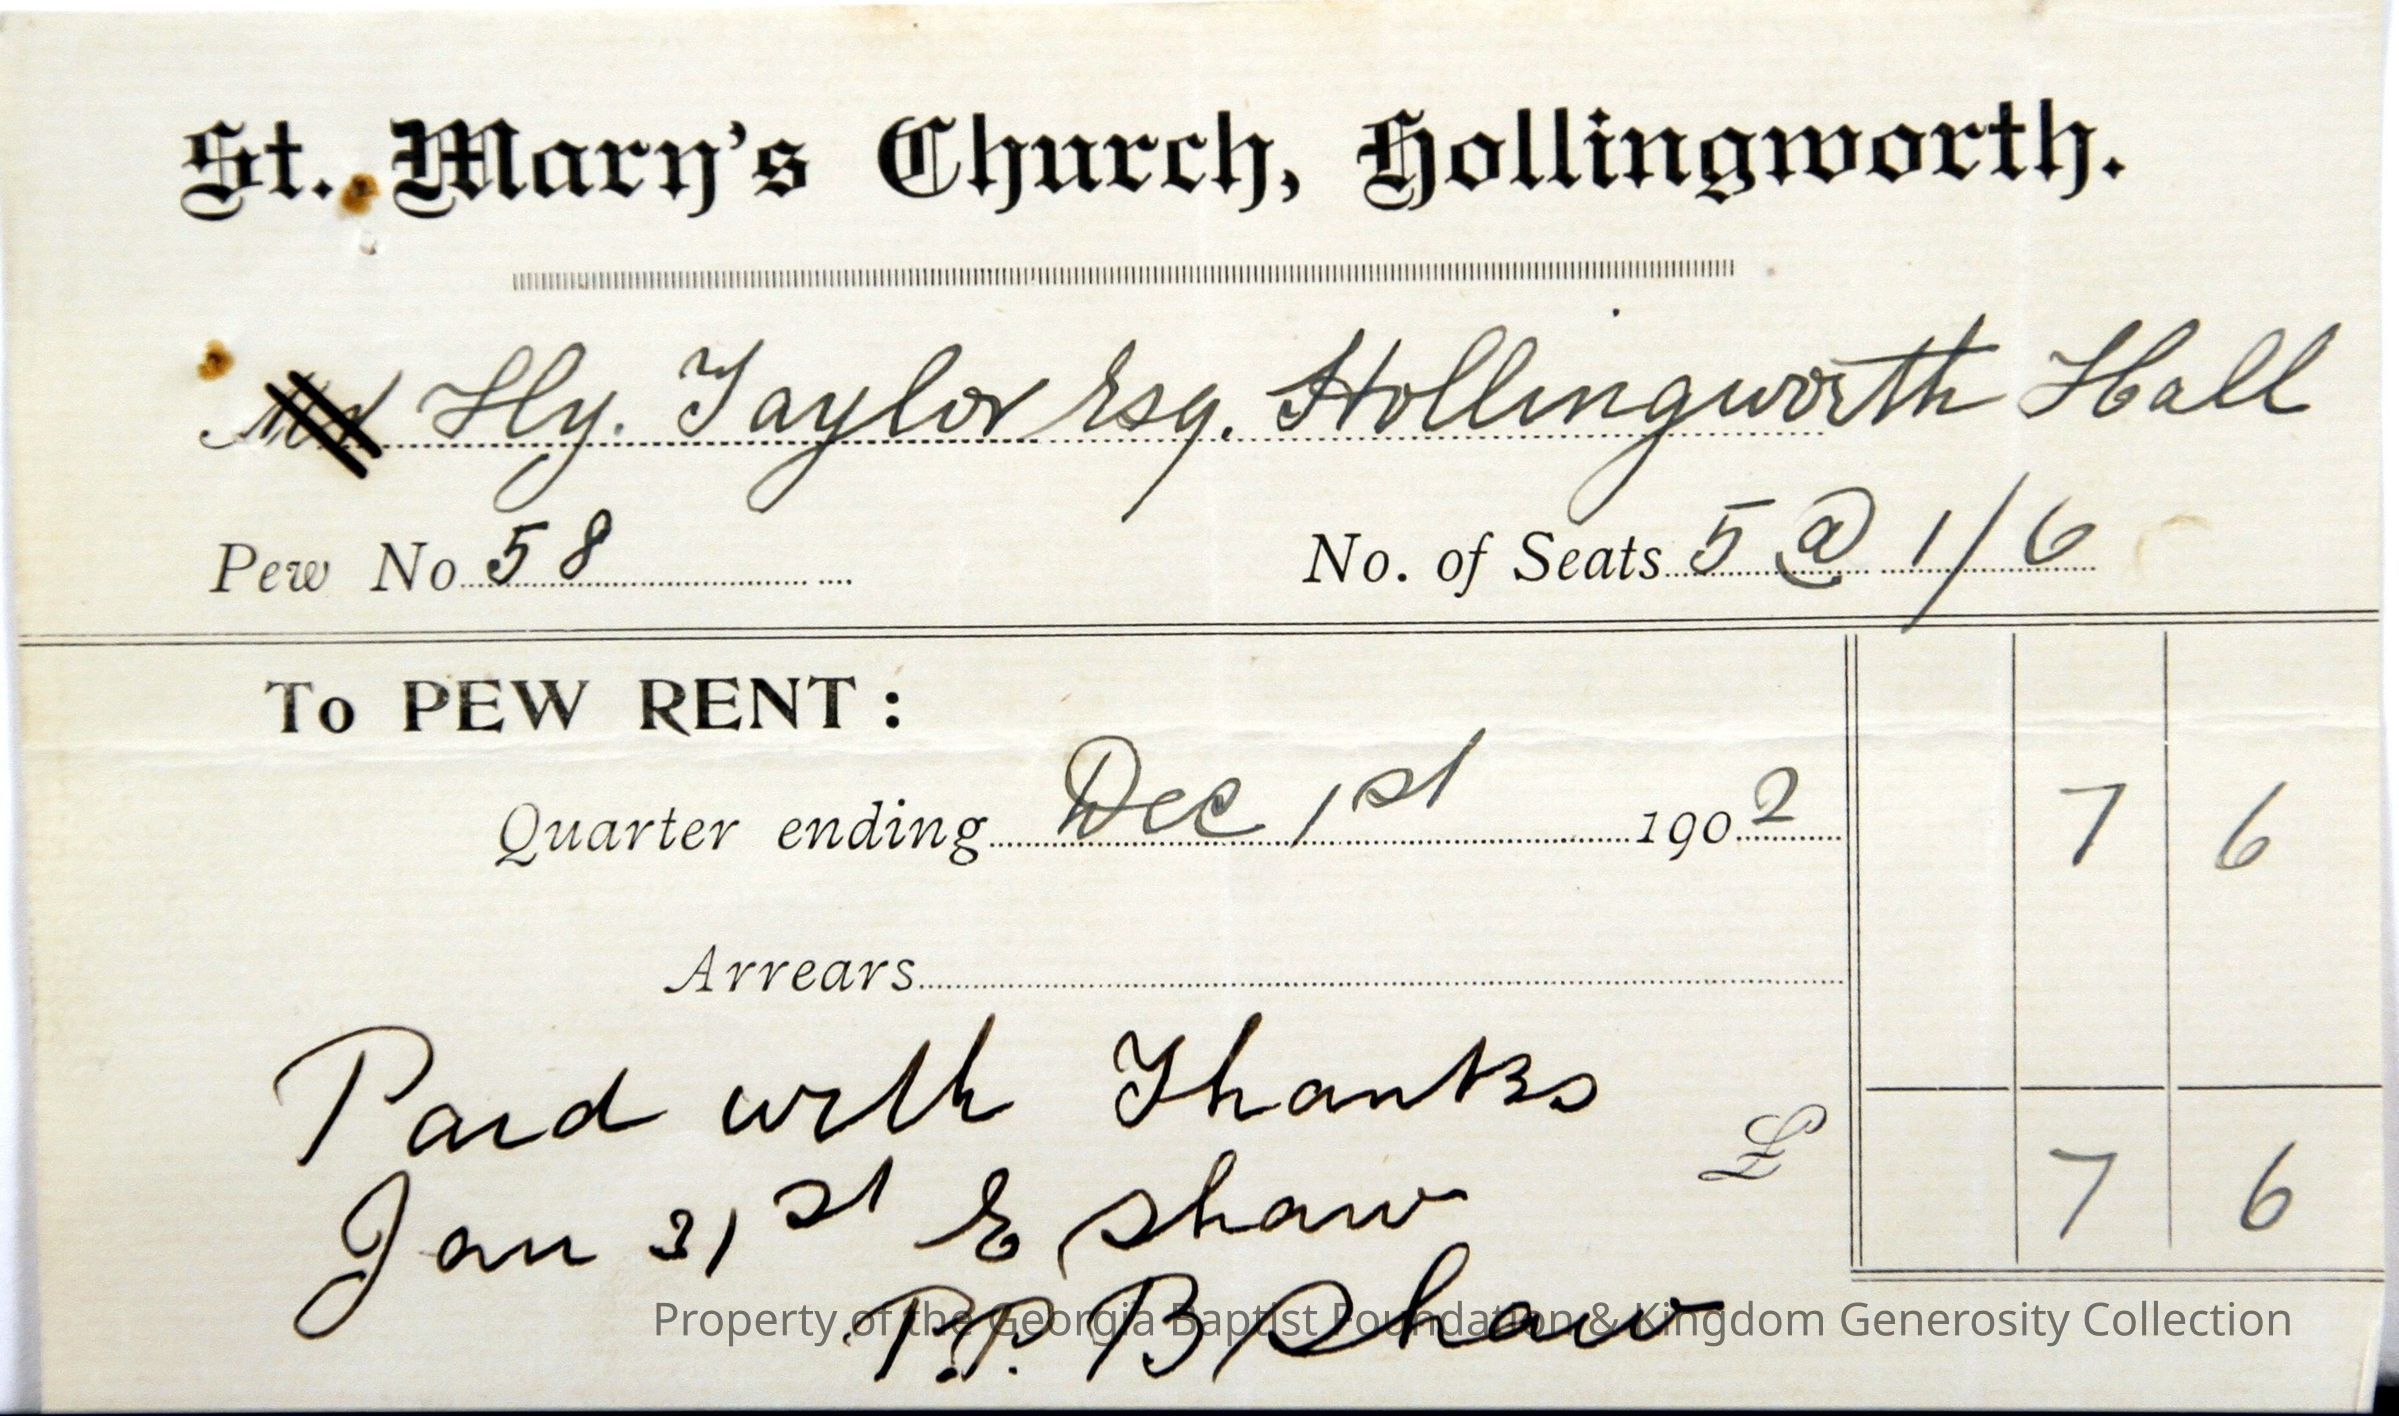 St. Mary's Church, Hollingworth.
Hy. Taylor Esq. Hollingworth Hall
Pew No 58 No. of Seats 5 @ 1/6
To PEW RENT:
Quarter ending Dec 1st 1902 7 6
Arrears
Paid with Thanks
£ 7 6
Jan 31st E Shaw
P.P. B Shaw
Property of the Georgia Baptist Foundation & Kingdom Generosity Collection